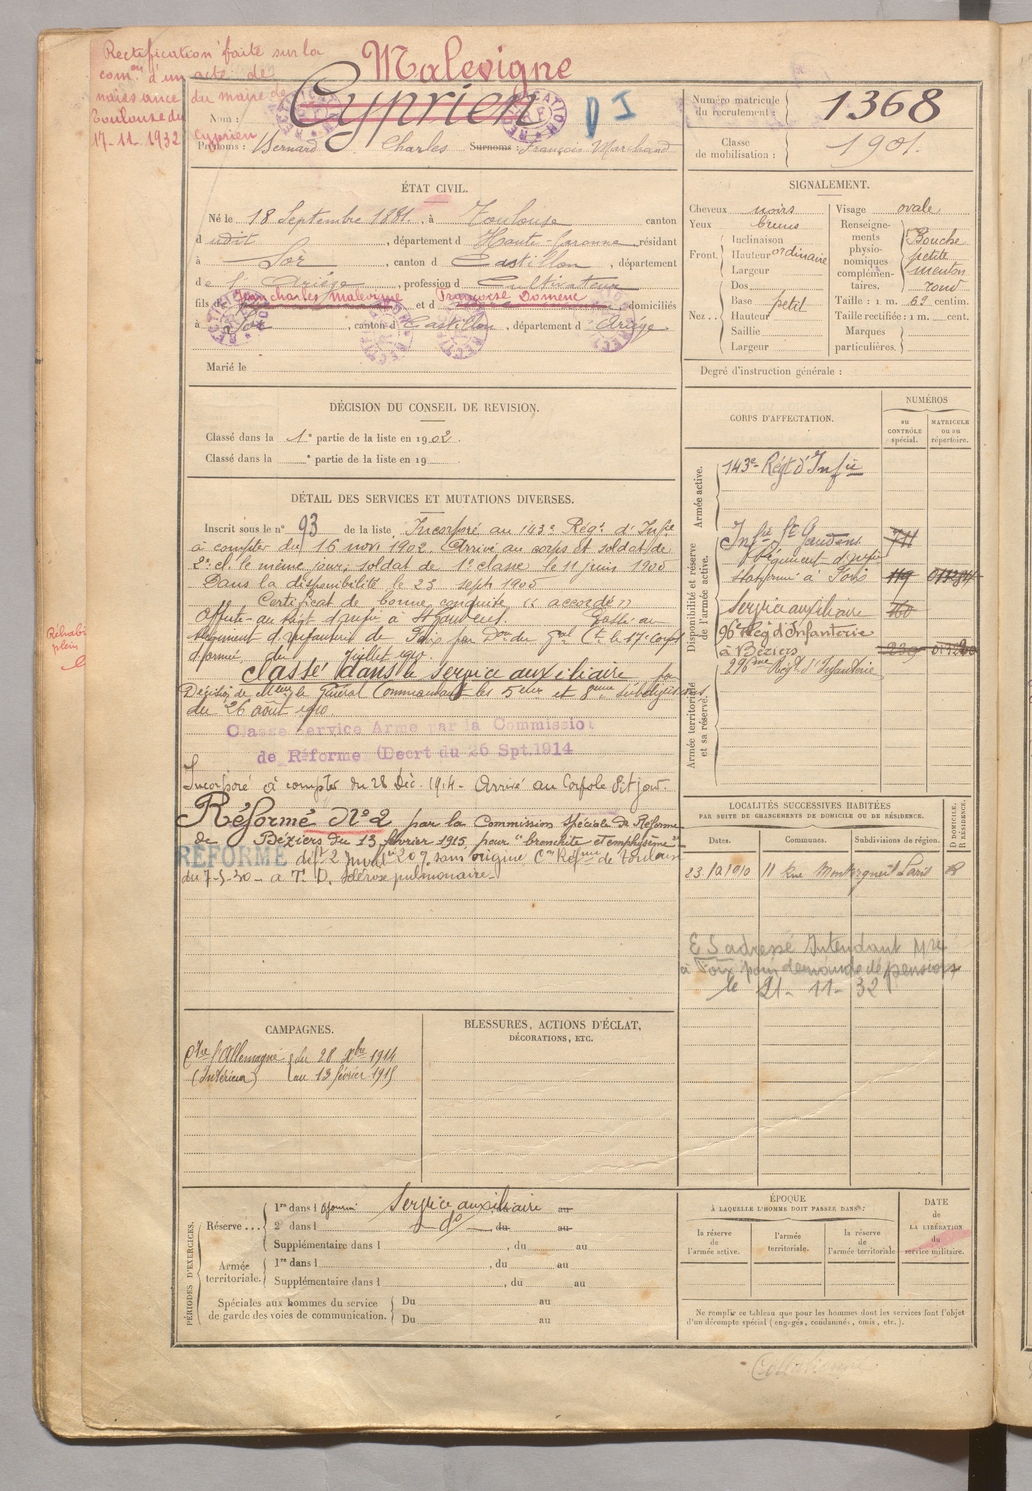 Rectification faite sur la
com^on d'un acte de
naissance du maire de
Toulouse du
17-11-1932
Malevigne
Nom : Cyprien
D I
Cyprien
Prénoms : Bernard Charles Surnoms : François Marchand
Numéro matricule du recrutement : 1368
Classe de mobilisation : 1901.
ÉTAT CIVIL.
Né le 18 Septembre 1881, à Toulouse canton
d udit, département d Haute-Garonne résidant
à Sor, canton d Castillon, département
de l'Ariège, profession d Cultivateur
fils d Jean Charles Malevigne et d Françoise Domenc domiciliés
à Sor, canton d Castillon, département d Ariège
Marié le
SIGNALEMENT.
Cheveux noirs
Yeux bruns
Front. Inclinaison
Hauteur ordinaire
Largeur
Nez.. Dos
Base petit
Hauteur
Saillie
Largeur
Visage ovale
Renseignements physionomiques complémentaires. Bouche petite menton rond
Taille : 1 m. 62 centim.
Taille rectifiée : 1 m. cent.
Marques particulières.
Degré d'instruction générale :
DÉCISION DU CONSEIL DE REVISION.
Classé dans la 1e partie de la liste en 1902.
Classé dans la e partie de la liste en 19
DÉTAIL DES SERVICES ET MUTATIONS DIVERSES.
Inscrit sous le n° 93 de la liste. Incorporé au 143e Régt d'Infie
à compter du 16 nov. 1902. Arrivé au corps et soldat de
2e cl. le même jour; soldat de 1e classe le 11 juin 1905
Dans la disponibilité le 23 sept 1905
Certificat de bonne conduite « accordé »
Affecté au Régt d'Infie de St Gaudens. Passé au
Régiment d'Infanterie de Foix par Don du Gal Ct le 17e Corps
d'armée, du Juillet 1910.
Classé dans le service auxiliaire par
Décision de Meur le Général Commandant les 5eme et 8eme subdivisions
du 26 août 1910.
Classé Service Armé par la Commission
de Réforme (Decrt du 26 Spt.1914
Incorporé à compter du 28 Déc. 1914. Arrivé au Corps le dit jour.
Réformé N°2 par la Commission Spéciale de Réforme
de Béziers du 13 février 1915, pour "bronchite et emphysème"
RÉFORMÉ déft 2 Invalté 20% sans origine Con Réfme de Toulouse
du 7-5-30 - a T. D. Sclérose pulmonaire.
CORPS D'AFFECTATION.
NUMÉROS
au CONTRÔLE spécial.
MATRICULE ou au répertoire.
Armée active.
143e Régt d'Infie
Disponibilité et réserve de l'armée active.
Infie St Gaudens 711
Régiment d'infie
stationné à Foix 119
Service auxiliaire 760
96e Rég d'Infanterie
à Béziers
296me Régt d'Infanterie
Armée territoriale et sa réserve.
LOCALITÉS SUCCESSIVES HABITÉES
PAR SUITE DE CHANGEMENTS DE DOMICILE OU DE RÉSIDENCE.
Dates. Communes. Subdivisions de région. D DOMICILE. R RÉSIDENCE.
23 1910 11 Rue Montorgueil Paris R
E S adressé Intendant Mre
à Foix pour demande de pension
le 21-11-32
CAMPAGNES.
Ctre l'Allemagne du 28 Xbre 1914
(Intérieur) au 13 février 1915
BLESSURES, ACTIONS D'ÉCLAT,
DÉCORATIONS, ETC.
PÉRIODES D'EXERCICES.
Réserve... 1re dans l Service auxiliaire au
2e dans l do du au
Supplémentaire dans l , du au
Armée territoriale. 1re dans l , du au
Supplémentaire dans l , du au
Spéciales aux hommes du service de garde des voies de communication. Du au
Du au
ÉPOQUE
À LAQUELLE L'HOMME DOIT PASSER DANS :
la réserve de l'armée active.
l'armée territoriale.
la réserve de l'armée territoriale
DATE de LA LIBÉRATION du service militaire.
Ne remplir ce tableau que pour les hommes dont les services font l'objet
d'un décompte spécial (engagés, condamnés, omis, etc.).